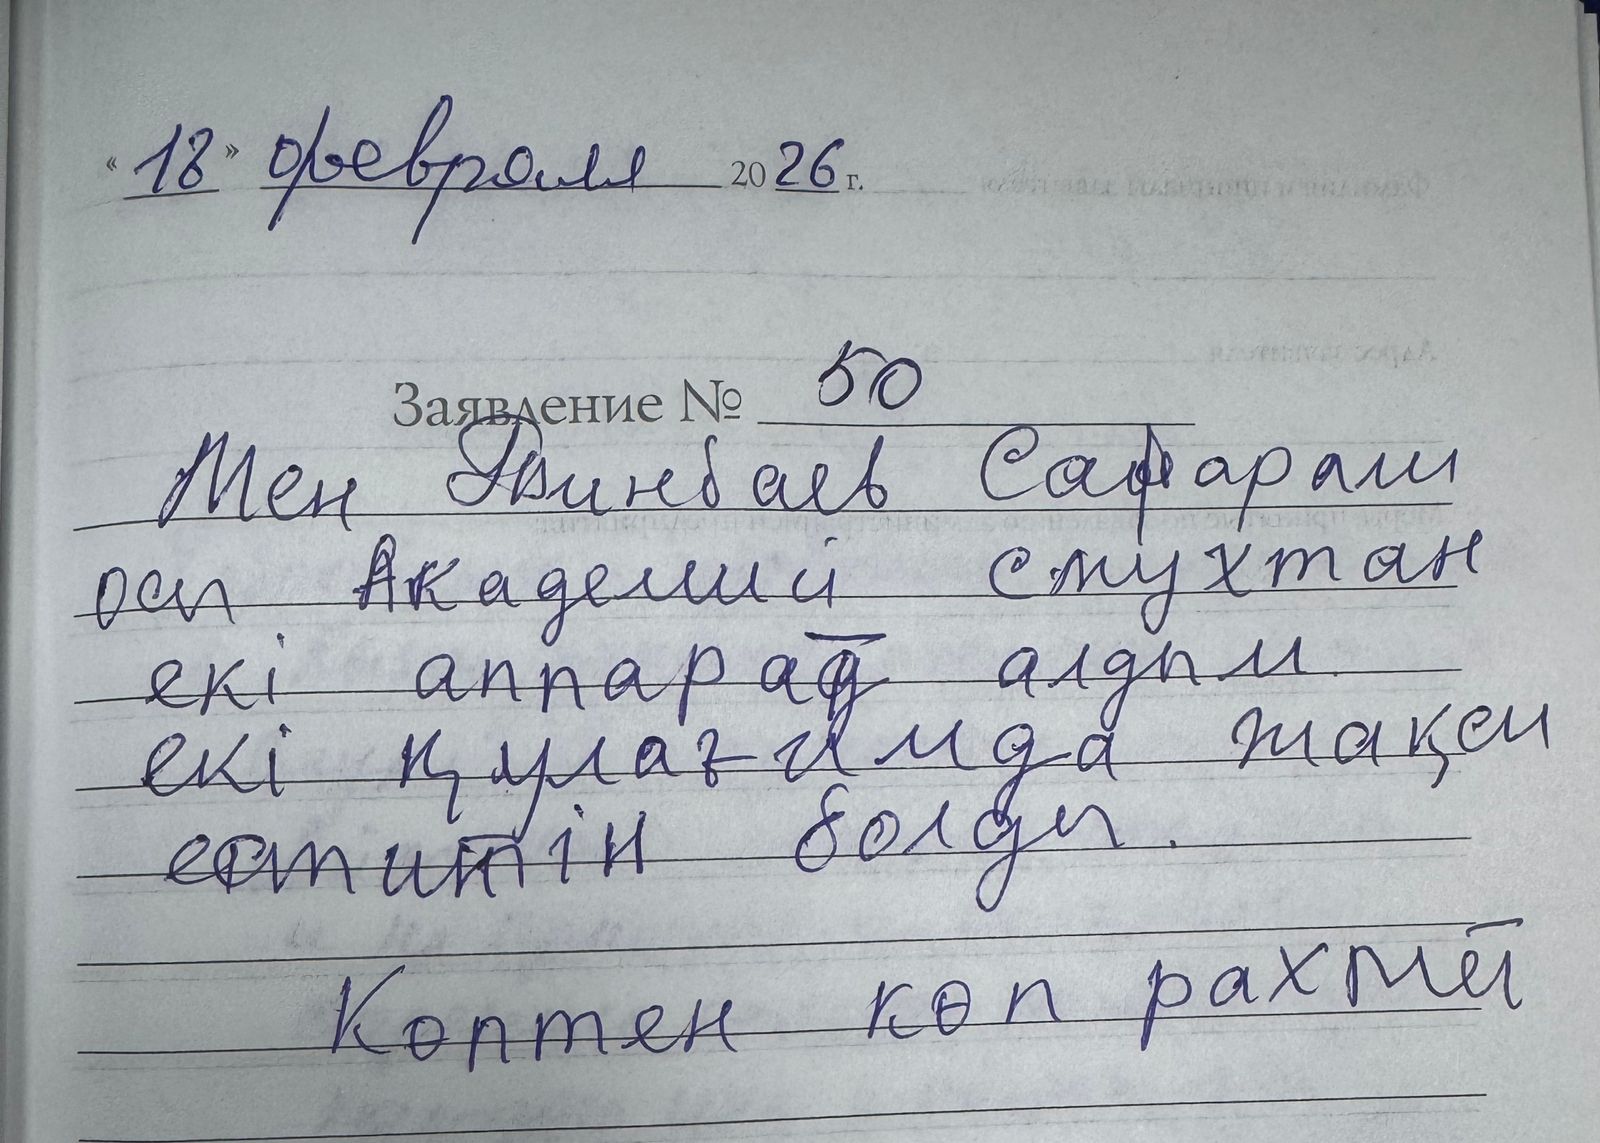 «18» февраля 2026 г.
Заявление № 50
Мен Динбаев Сафарали
осы Академий смухтан
екі аппарат алдым.
екі құлағымда жақсы
еститтін болды.
Коптен көп рахмтй